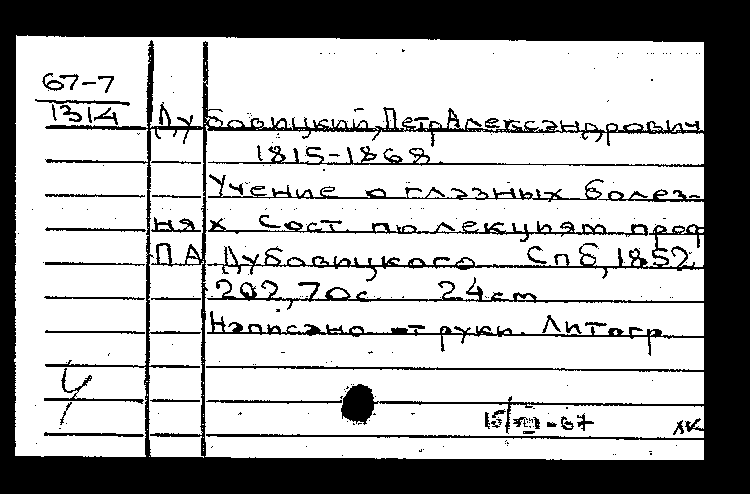 67-7
1314
Дубовицкий, Петр Александрович
1815-1868.
Учение о глазных болез-
нях. Сост. по лекциям проф
П А Дубовицкого Спб, 1852.
202, 70 с 24 cm
Написано от руки. Литогр
15/VIII-67 жк